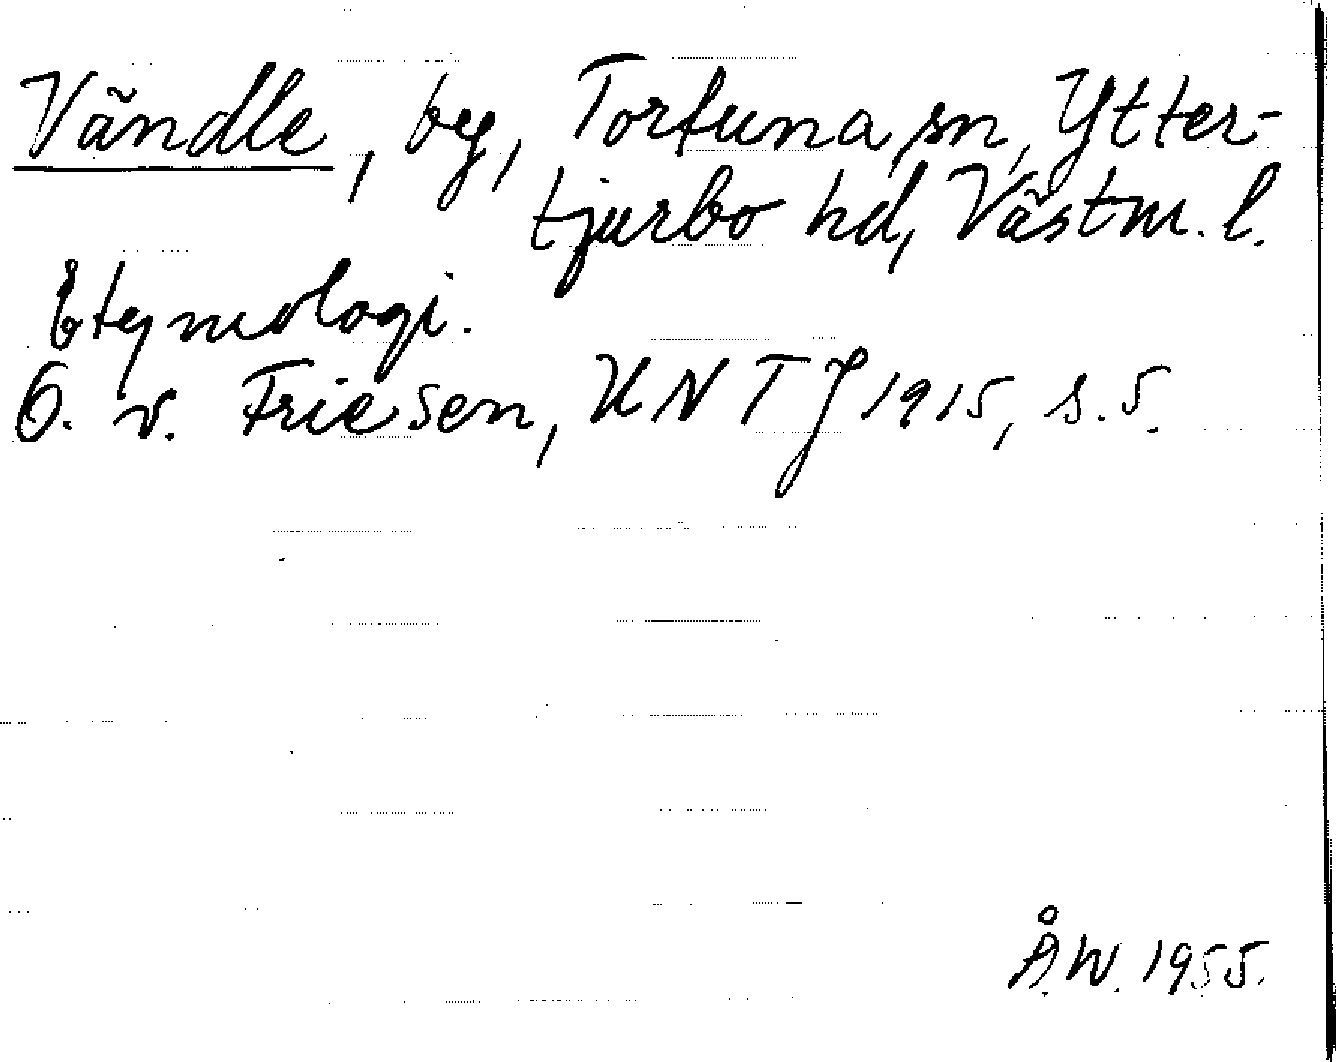 Vändle, by, Tortuna sn, Ytter-
tjurbo hd, Västm. l.
Etymologi.
O. v. Friesen, UNTJ 1915, s. 5.
Å.W. 1955.